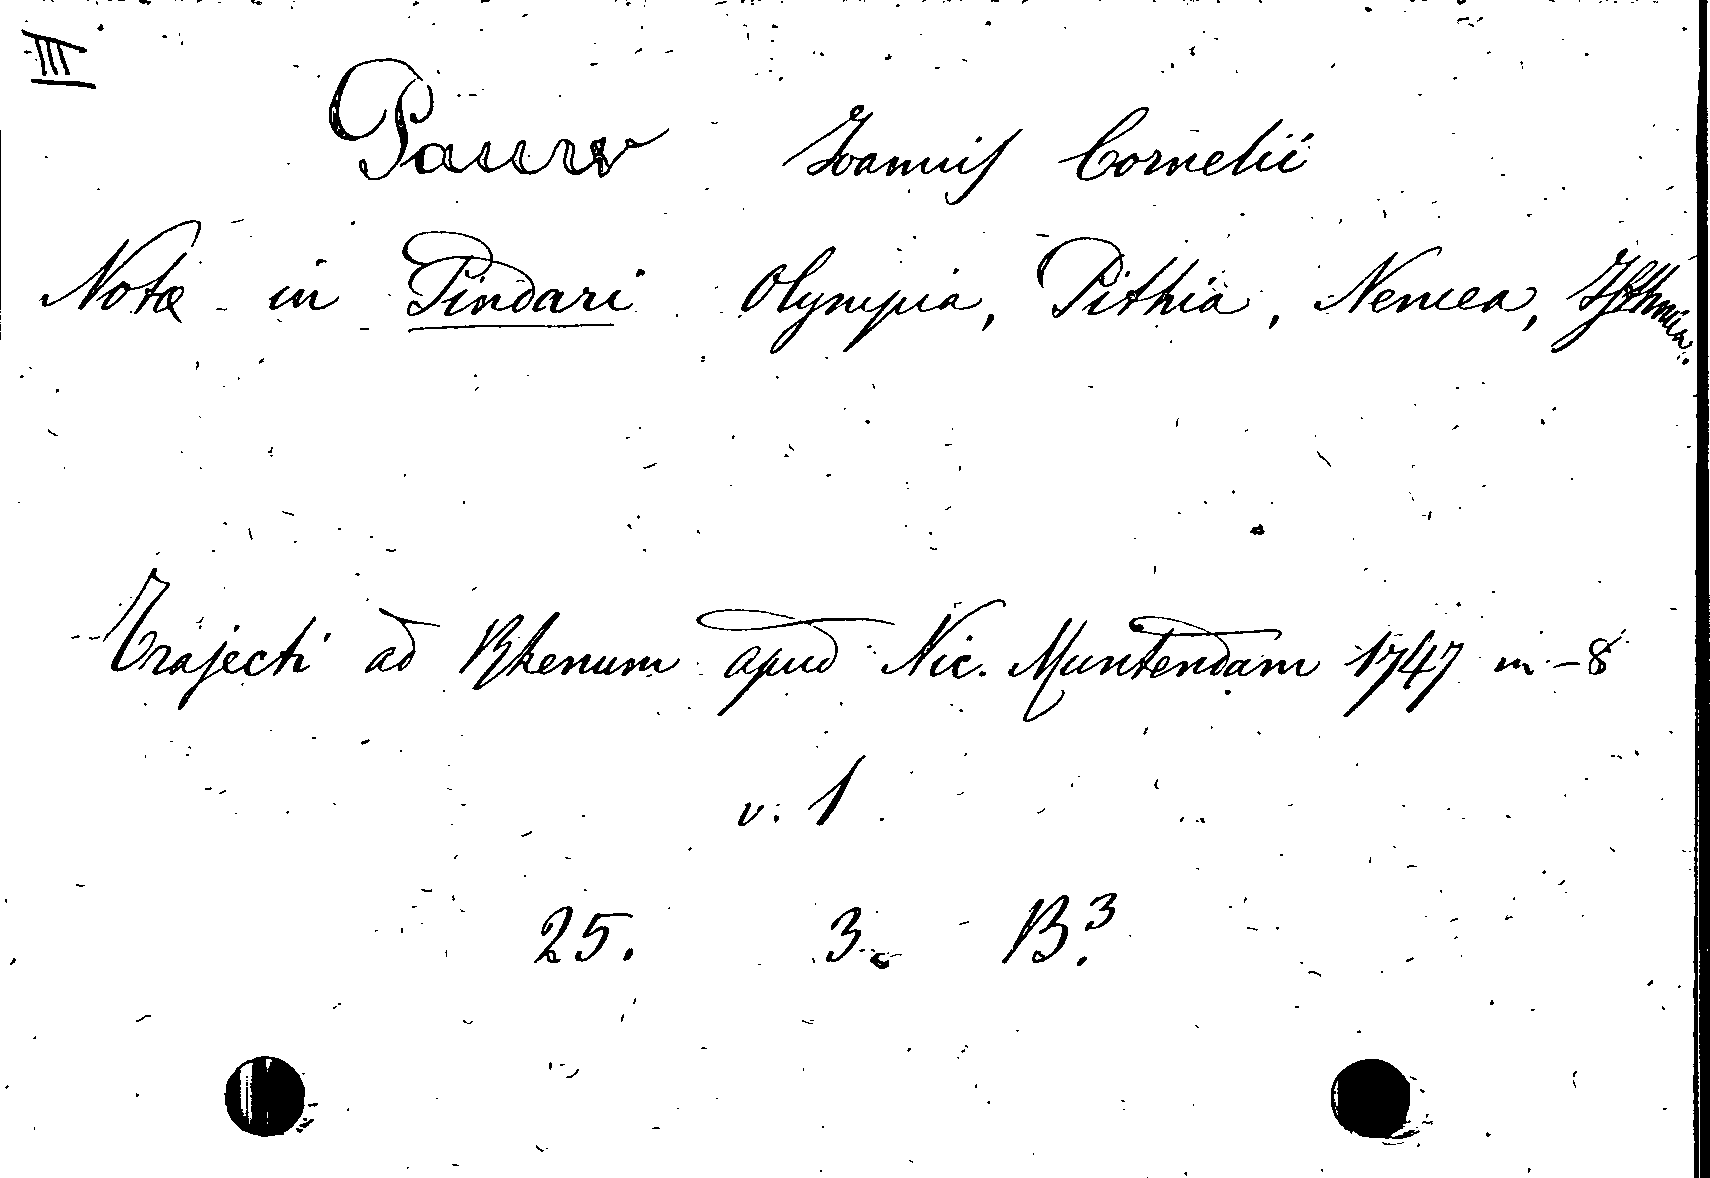 III
Pauw Ioannis Cornelii
Notæ in Pindari Olympia, Pithia, Nemea, Isthmia.
Trajecti ad Rhenum apud Nic. Muntendam 1747 in-8
v. 1
25. 3. B³.